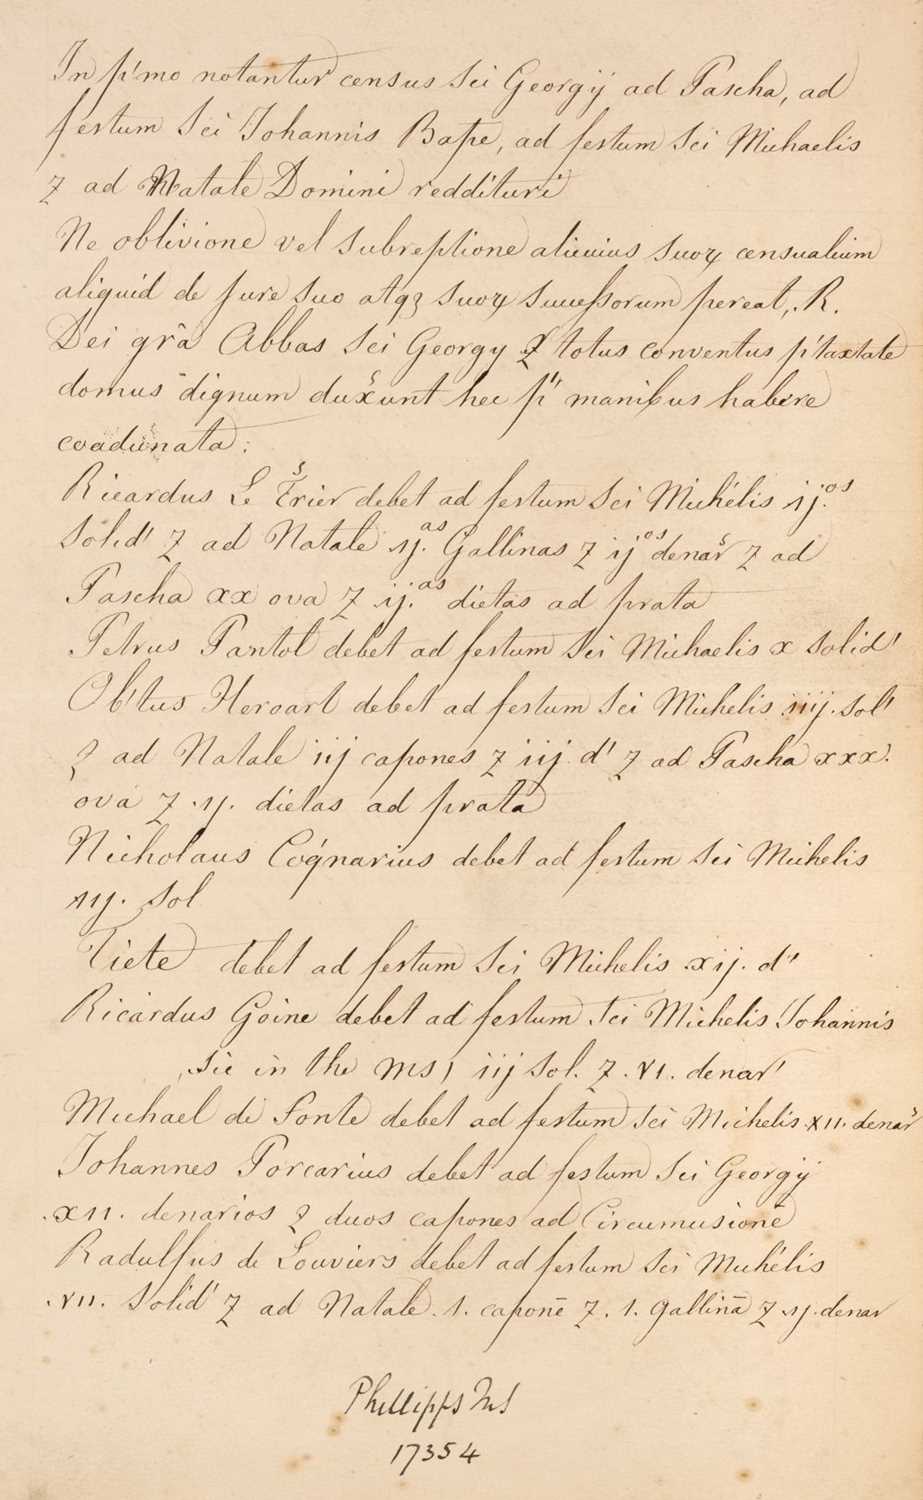 In p'mo notantur census Sci Georgij ad Pascha, ad
festum Sci Johannis Bapte, ad festum Sci Michaelis
⁊ ad Natale Domini reddituri
Ne oblivione vel subreptione alicuius suoꝝ censualium
aliquid de jure suo atqꝫ suoꝝ successorum pereat, .R.
Dei grâ Abbas Sci Georgy ⁊ totus conventus p'taxtate
domus dignum duxunt hec p'' manibus habere
coadunata:
Ricardus Le Trier debet ad festum Sci Michélis ij.os
Solid' ⁊ ad Natale .ij.as Gallinas ⁊ ijos denar ⁊ ad
Pascha xx ova ⁊ .ij.as dietas ad prata
Petrus Pantol debet ad festum Sci Michaelis x solid'
Ob'tus Heroart debet ad festum Sci Michelis .iiij. sol'
⁊ ad Natale iij capones ⁊ iij d' ⁊ ad Pascha xxx.
ova ⁊ .ij. dietas ad prata
Nicholaus Coq'narius debet ad festum Sci Michelis
iij. Sol
Tiete debet ad festum Sci Michelis .xij. d'
Ricardus Goine debet ad festum Sci Michelis Johannis
(sic in the MS) iij Sol. ⁊ .vi. denar'
Michael de Fonte debet ad festum Sci Michelis .xii. denar
Johannes Porcarius debet ad festum Sci Georgij
.xii. denarios ⁊ duos capones ad Circumusionē
Radulfus de Louviers debet ad festum Sci Michélis
.vii. Solid' ⁊ ad Natale .i. caponē ⁊ .i. gallinā ⁊ .ij. denar
Phillipps MS
17354